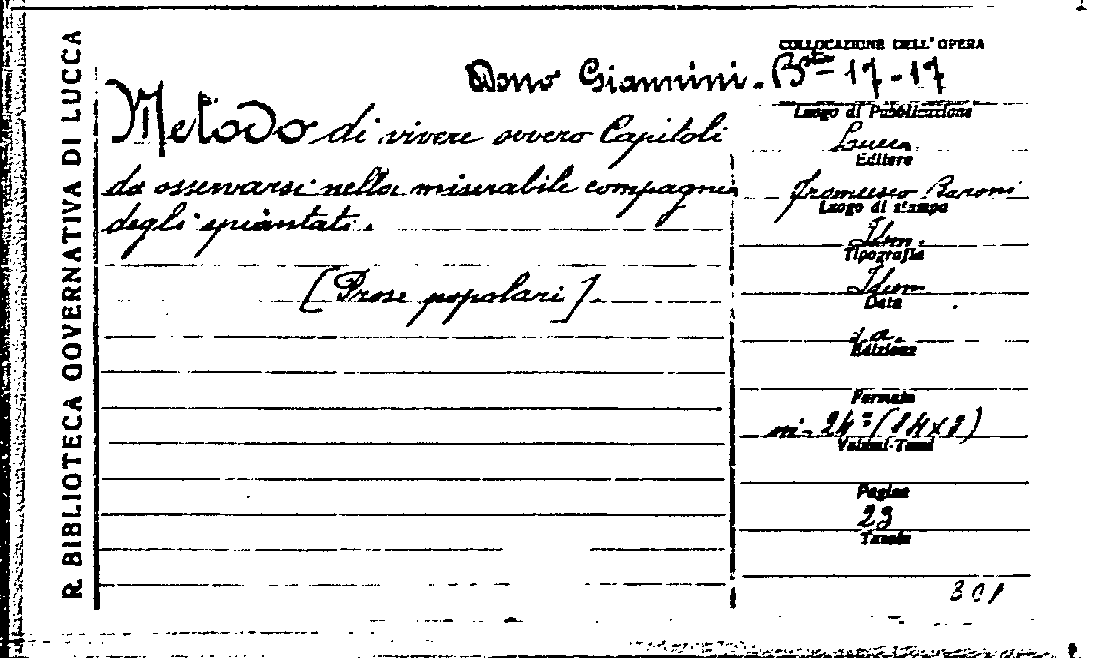 R. BIBLIOTECA GOVERNATIVA DI LUCCA
COLLOCAZIONE DELL'OPERA
Dono Giannini. B.sta 17-17
Metodo di vivere ovvero Capitoli
da osservarsi nella miserabile compagnia
degli spiantati.
[Prose popolari].
Luogo di Pubblicazione
Lucca
Editore
Francesco Baroni
Luogo di stampa
Idem.
Tipografia
Idem
Data
s.a.
Edizione
Formato
in-24° (14x8)
Volumi-Tomi
Pagine
23
Tavole
301